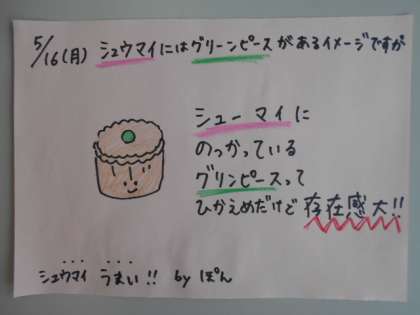 5/16(月) シュウマイにはグリーンピースがあるイメージですが
シューマイに
のっかっている
グリンピースって
ひかえめだけど 存在感大!!
シュウマイ うまい!! by ぽん